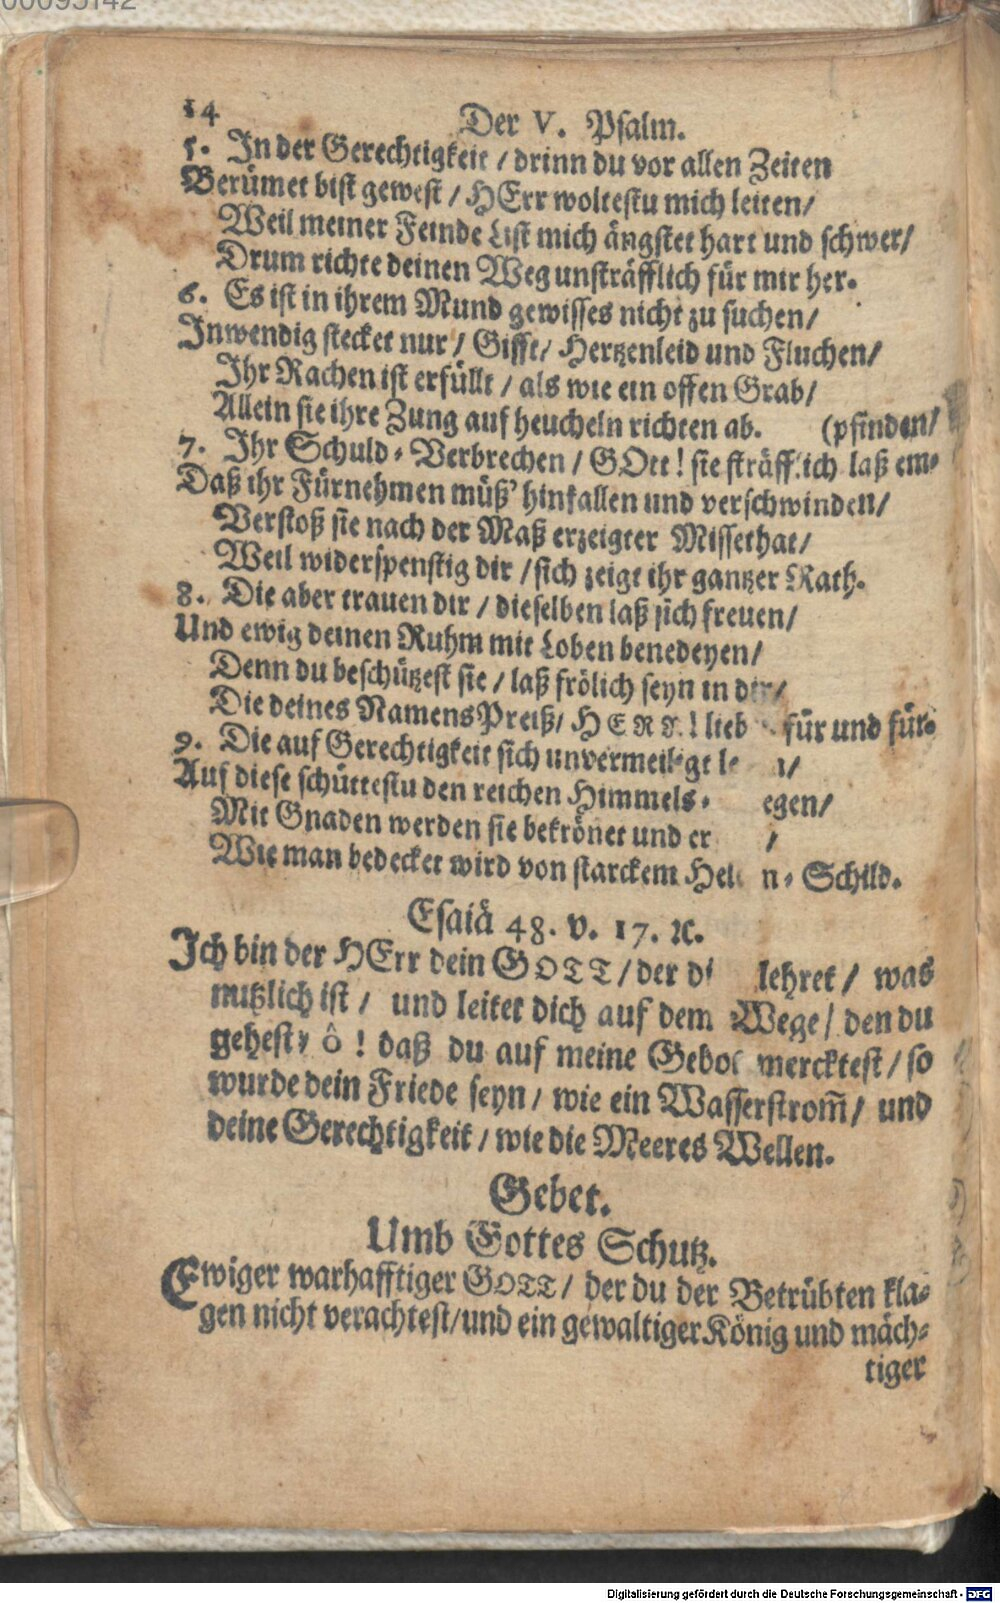 00095142
14
Der V. Psalm.
5. In der Gerechtigkeit / drinn du vor allen Zeiten
Berümet bist gewest / HErr woltestu mich leiten/
Weil meiner Feinde List mich ängstet hart und schwer/
Drum richte deinen Weg unsträfflich für mir her.
6. Es ist in ihrem Mund gewisses nicht zu suchen/
Inwendig stecket nur / Gifft/ Hertzenleid und Fluchen/
Ihr Rachen ist erfüllt / als wie ein offen Grab/
Allein sie ihre Zung auf heucheln richten ab. (pfinden/
7. Ihr Schuld-Verbrechen / GOtt! sie sträfflich laß em-
Daß ihr Fürnehmen müß' hinfallen und verschwinden/
Verstoß sie nach der Maß erzeigter Missethat/
Weil widerspenstig dir / sich zeigt ihr gantzer Rath.
8. Die aber trauen dir / dieselben laß sich freuen/
Und ewig deinen Ruhm mit Loben benedeyen/
Denn du beschützest sie / laß frölich seyn in dir/
Die deines Namens Preiß/ HERR! lieb für und für.
9. Die auf Gerechtigkeit sich unvermeiligt
Auf diese schüttestu den reichen Himmels- egen/
Mit Gnaden werden sie bekrönet und er /
Wie man bedecket wird von starckem Hel n-Schild.
Esaiä 48. v. 17. ꝛc.
Ich bin der HErr dein GOTT / der di lehret / was
nutzlich ist / und leitet dich auf dem Wege / den du
gehest, ô ! daß du auf meine Gebot mercktest / so
wurde dein Friede seyn / wie ein Wasserstrom̃ / und
deine Gerechtigkeit / wie die Meeres Wellen.
Gebet.
Umb Gottes Schutz.
Ewiger warhafftiger GOTT / der du der Betrübten kla-
gen nicht verachtest/und ein gewaltiger König und mäch-
tiger
Digitalisierung gefördert durch die Deutsche Forschungsgemeinschaft - DFG